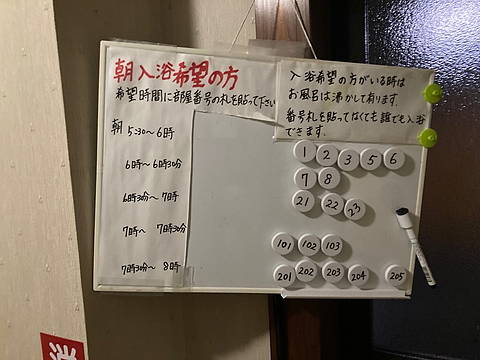 朝入浴希望の方
希望時間に部屋番号の札を貼って下さい
入浴希望の方がいる時は
お風呂は沸かして有ります.
番号札を貼ってなくても誰でも入浴
できます.
朝 5:30~6時
6時~6時30分
6時30分~7時
7時~ 7時30分
7時30分~ 8時
1 2 3 5 6
7 8
21 22 23
101 102 103
201 202 203 204 205